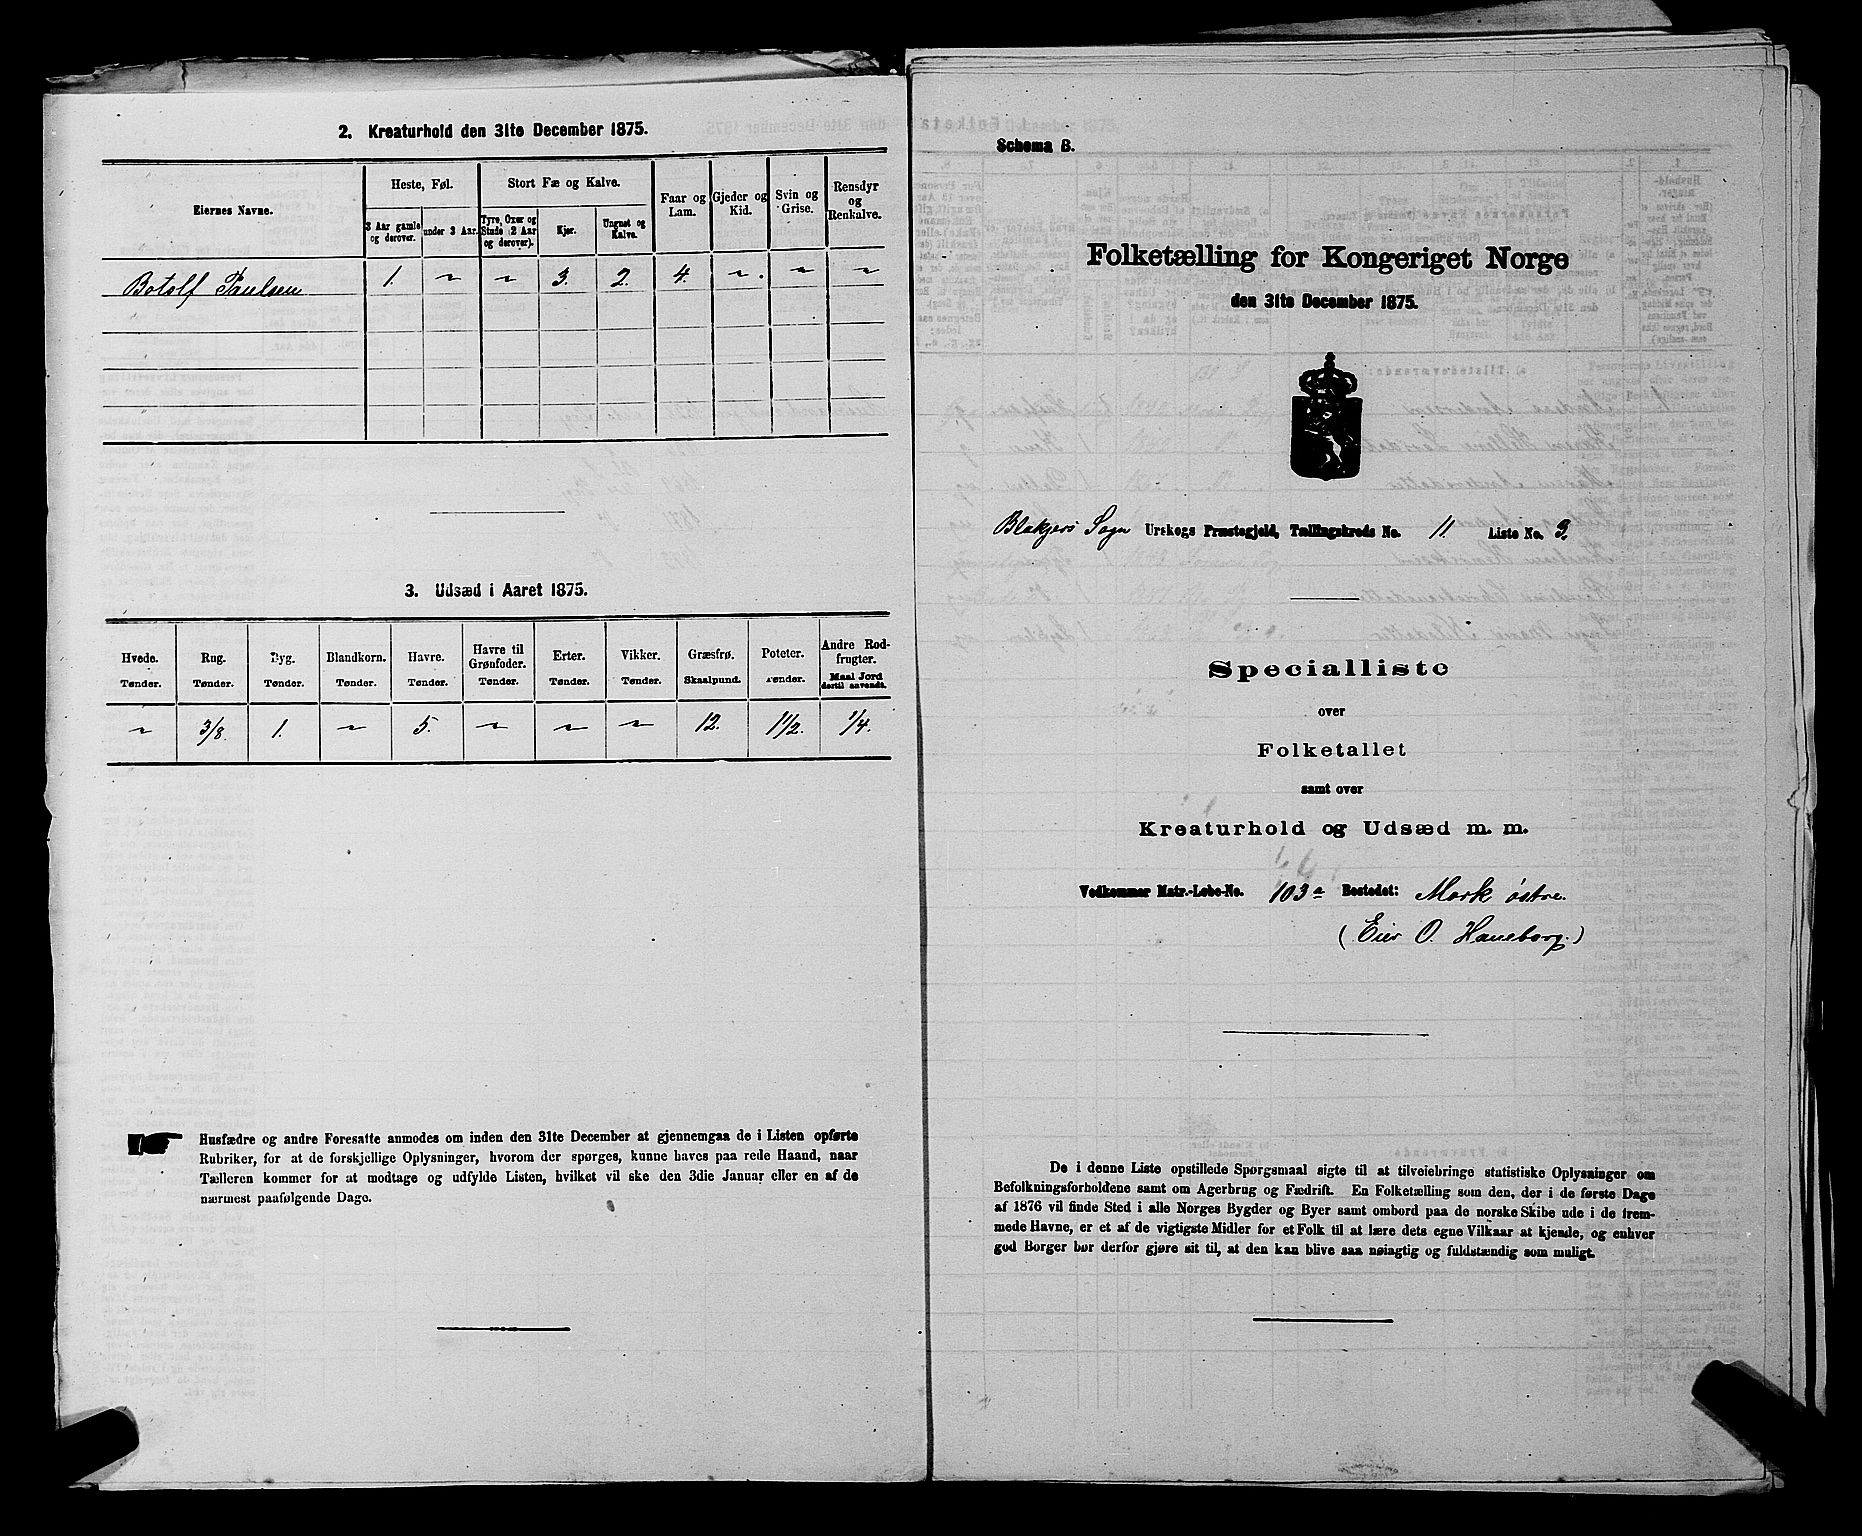 2. Kreaturhold den 31te December 1875.
Eiernes Navne.
Heste, Føl.
Stort Fæ og Kalve.
Faar og Lam.
Gjeder og Kid.
Svin og Grise.
Rensdyr og Renkalve.
3 Aar gamle og derover.
under 3 Aar.
Tyre, Oxer og Stude (2 Aar og derover).
Kjør.
Ungnøt og Kalve.
Botolf Paulsen 1. " " 3. 2. 4. " " "
3. Udsæd i Aaret 1875.
Hvede. Rug. Byg. Blandkorn. Havre. Havre til Grønfoder. Erter. Vikker. Græsfrø. Poteter. Andre Rodfrugter.
Tønder. Tønder. Tønder. Tønder. Tønder. Tønder. Tønder. Tønder. Skaalpund. Tønder. Maal Jord dertil anvendt.
" 3/8. 1. " 5. " " " 12. 1 1/2. 1/4.
Husfædre og andre Foresatte anmodes om inden den 31te December at gjennemgaa de i Listen opførte
Rubriker, for at de forskjellige Oplysninger, hvorom der spørges, kunne haves paa rede Haand, naar
Tælleren kommer for at modtage og udfylde Listen, hvilket vil ske den 3die Januar eller en af de
nærmest paafølgende Dage.
Schema B.
Folketælling for Kongeriget Norge
den 31te December 1875.
Blakjers Sogn Urskogs Præstegjeld, Tællingskreds No. 11. Liste No. 3.
Specialliste
over
Folketallet
samt over
Kreaturhold og Udsæd m. m.
Vedkommer Matr.-Løbe-No. 103a Bostedet: Mork østre.
(Eier O. Haneborg.)
De i denne Liste opstillede Spørgsmaal sigte til at tilveiebringe statistiske Oplysninger om
Befolkningsforholdene samt om Agerbrug og Fædrift. En Folketælling som den, der i de første Dage
af 1876 vil finde Sted i alle Norges Bygder og Byer samt ombord paa de norske Skibe ude i de frem-
mede Havne, er et af de vigtigste Midler for et Folk til at lære dets egne Vilkaar at kjende, og enhver
god Borger bør derfor gjøre sit til, at den kan blive saa nøiagtig og fuldstændig som muligt.